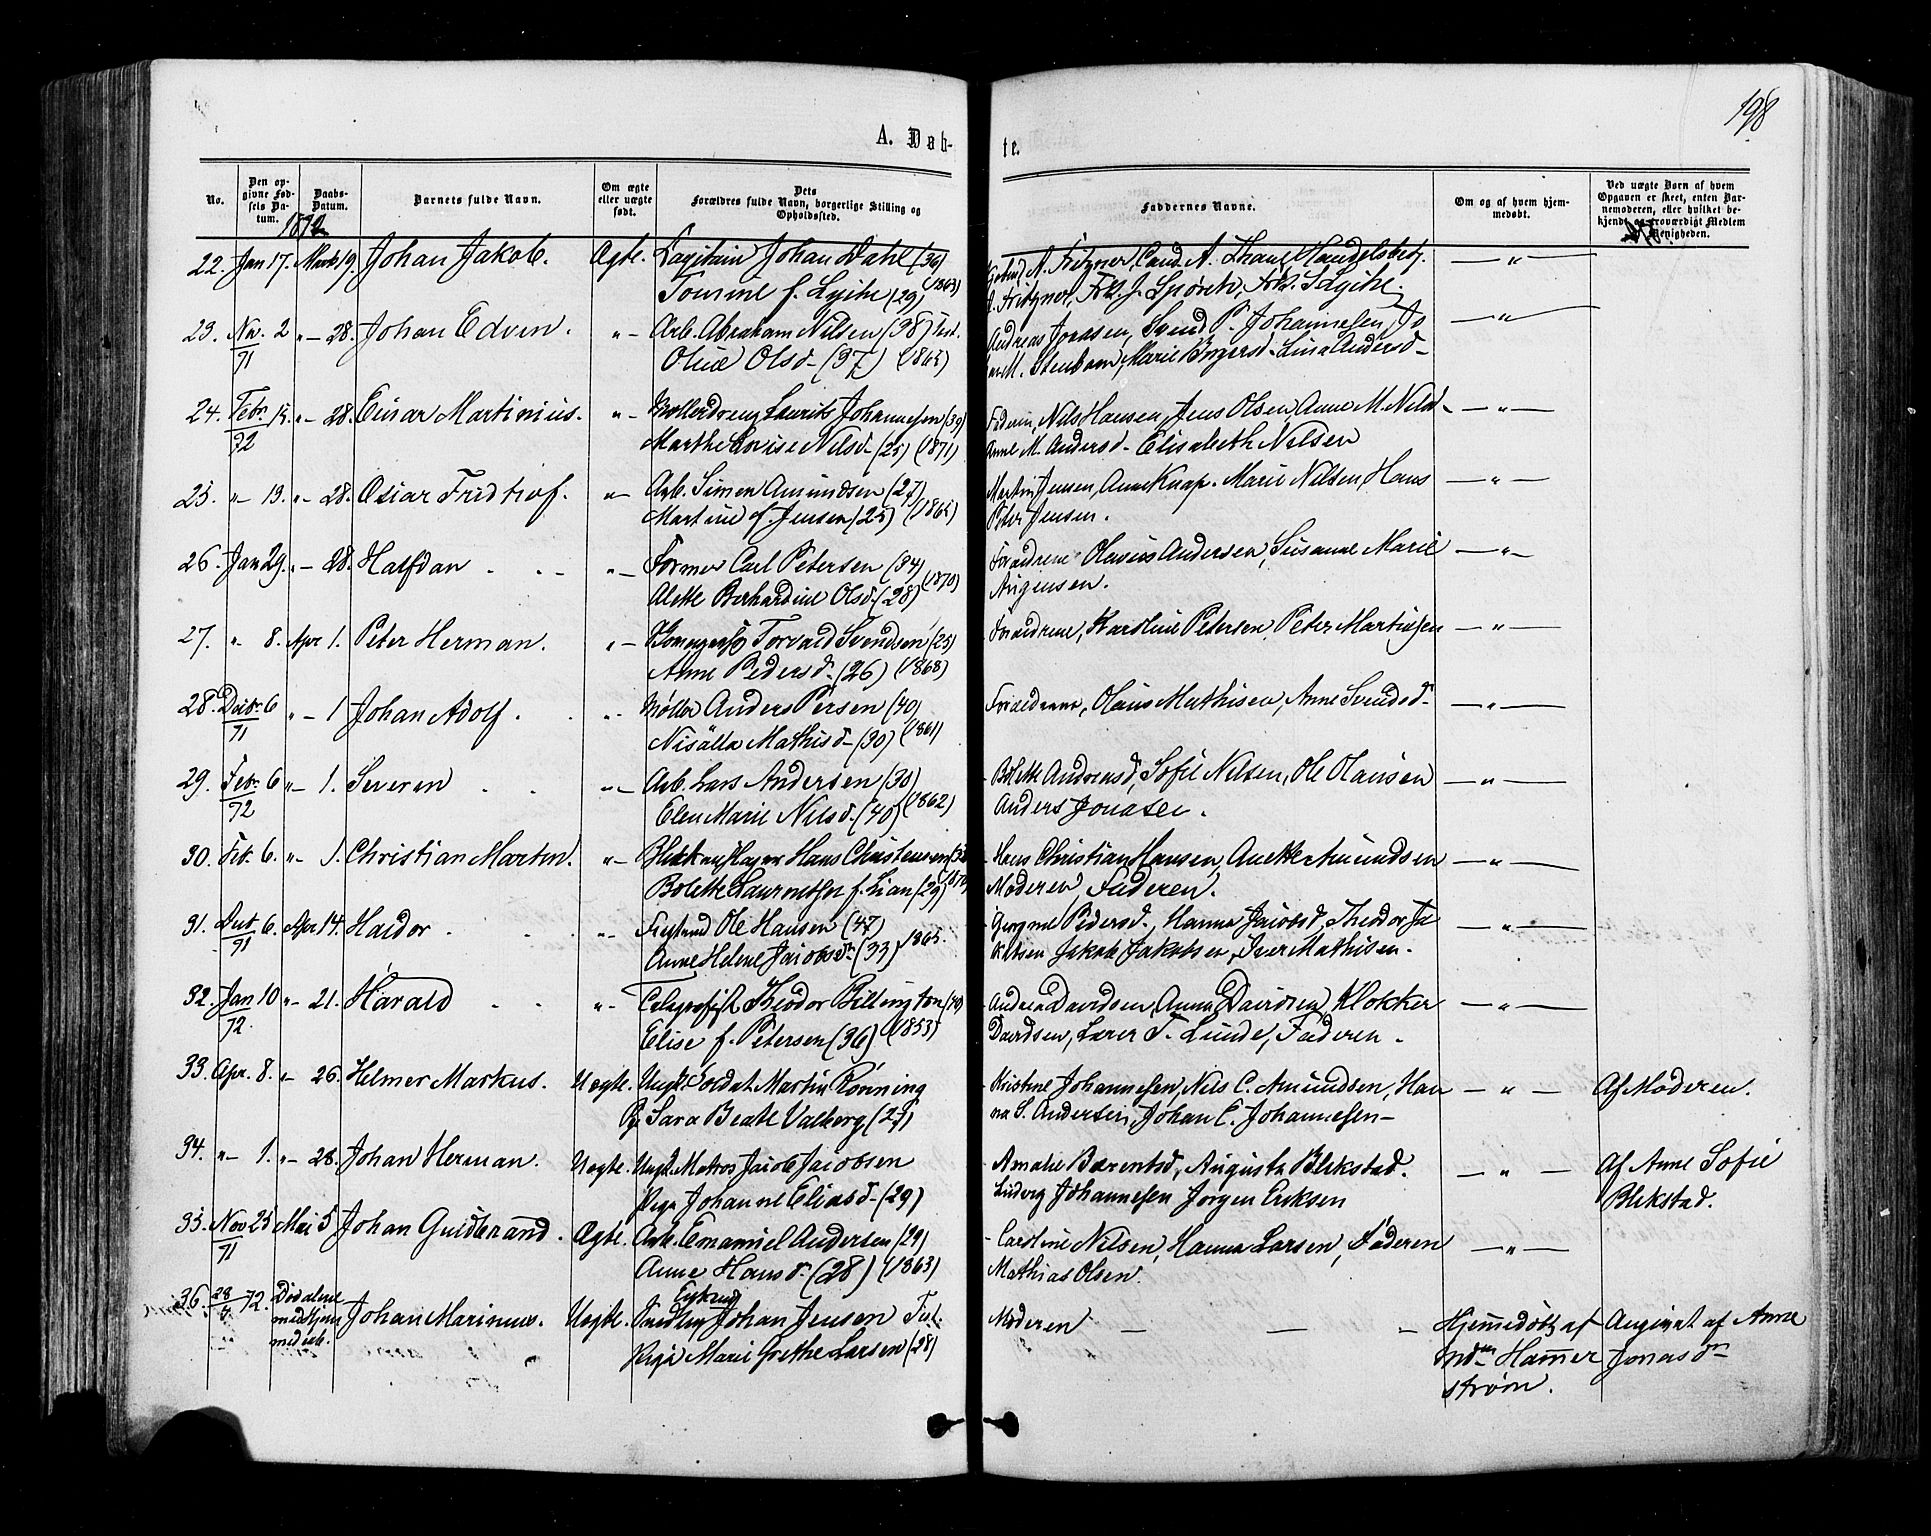 198
A. Døb-
te.
No.
Den op-
givne Fød-
sels Da-
tum.
Daabs-
Datum.
1872
Barnets fulde Navn.
Om ægte
eller uægte
født.
Dets
Forældres fulde Navn, borgerlige Stilling og
Opholdssted.
Faddernes Navne.
Om og af hvem hjem-
medøbt.
Ved uægte Børn af hvem
Opgaven er skeet, enten Bar-
nemoderen, eller hvilket be-
kjendt troværdigt Medlem
af Menigheden.
22. Jan 17. Marts 19. Johan Jakob. Ægte. Johan Dahl (36)
f. (29) (1863)
A. Fritzner, Cand. A.
Fritzner, Frk. J. Frk. S.
— " —
23. Nov. 2 " — 28. Johan Edvin. " — Arb. Abraham Nilsen (38)
71 Oline Olsd. (37) (1865)
Andreas Jonasen, Svend P. Johannesen, Jo
M. Stenbom, Marie Lina Andersd —
— " —
24. Febr. 15. " — 28. Einar Martinius. " — Møllerdreng Laurits Johannesen (39)
72 Marthe Lovise Nilsd. (25) (1871)
Faderen, Nils Hansen, Jens Olsen, Anne M. Nilsd —
Anne M. Andersd — Elisabeth Nilsen
— " —
25. " — 13. " — 28. Oscar Fridtiof. " — Arb. Simen Amundsen (27)
Martine f. Jensen (25) (1865)
Martin Jensen, Anne Knap. Marie Nilsen Hans
Peter Jensen.
— " —
26. Jan 29. " — 28. Halfdan " — Former Carl Petersen (34)
Alette Berhardine Olsd. (28) (1870)
Forældrene Olavus Andersen, Susanne Marie
Jørgensen.
— " —
27. " 8. Apr 1. Peter Herman. " — Torvald Svendsen (25)
Anne Pedersd. (26) (1868)
Forældrene, Karoline Petersen, Peter Martinsen
— " —
28. Decbr 6 " — 1 Johan Adolf. " — Møller Anders Persen (40)
71 Mathisd — (30) (1861)
Forældrene, Olaus Mathisen, Anne Svendsd —
— " —
29. Febr. 6 " — 1. Severen " — Arb. Lars Andersen (30)
72 Elen Marie Nilsd. (40) (1862)
Bolette Andreasd, Sofie Nilsen, Ole Olausen
Anders Jonasen.
— " —
30. Feb. 6. " — 1. Christian Marten. " — Hans Christensen
Bolette f. Lian (29)
Hans Christian Hansen, Anette Amundsen
Moderen, Faderen.
— " —
31. Decb. 6. Apr 14. Haldor " — Ole Hansen (47)
71 Anne Helene Jacobsd. (33) 1865.
Pedersd. Hanna Jacobsd, Theodor Ja
kobsen Jakob Jakobsen, Iver Mathisen.
— " —
32. Jan 10 " — 21. Harald " — Telegrafist Theodor Billington (40)
72. Elise f. Petersen (36) (1853)
Andrea Davidsen, Anna Davidsen, Klokker
Davidsen, Lærer T. Lunde, Faderen —
— " —
33. Apr. 8. " — 26. Helmer Markus. Uægte. Ungk. Soldat Martin Rønning
Pg. Sara Beate Valborg (27)
Kristine Johannesen, Nils C. Amundsen, Han
na S. Andersen, Johan C. Johannesen —
— " — Af Moderen.
34. " — 1. " — 28. Johan Herman. Uægte. Ungk. Matros Jacob Jacobsen
Pige Johanne Eliasd — (29)
Amalie Bærentsd, Augusta Blekstad.
Ludvig Johannesen Jørgen Eriksen
— " — Af Anne Sofie
Blekstad.
35. Nov 25 Mai 5 Johan Guldbrand. Ægte. Arb. Emanuel Andersen (29)
71 Anne Hansd. (28) (1863)
Caroline Nilsen, Hanna Larsen, Faderen
Mathias Olsen.
— " —
36. 28/4 72. Johan Marinius. Uægte. Johan Jensen
Pige Marie Grethe Larsen (28)
Moderen — — —
Hjemmedøbt af
Hammer
strøm.
Angivet af Anne
Jonasdn